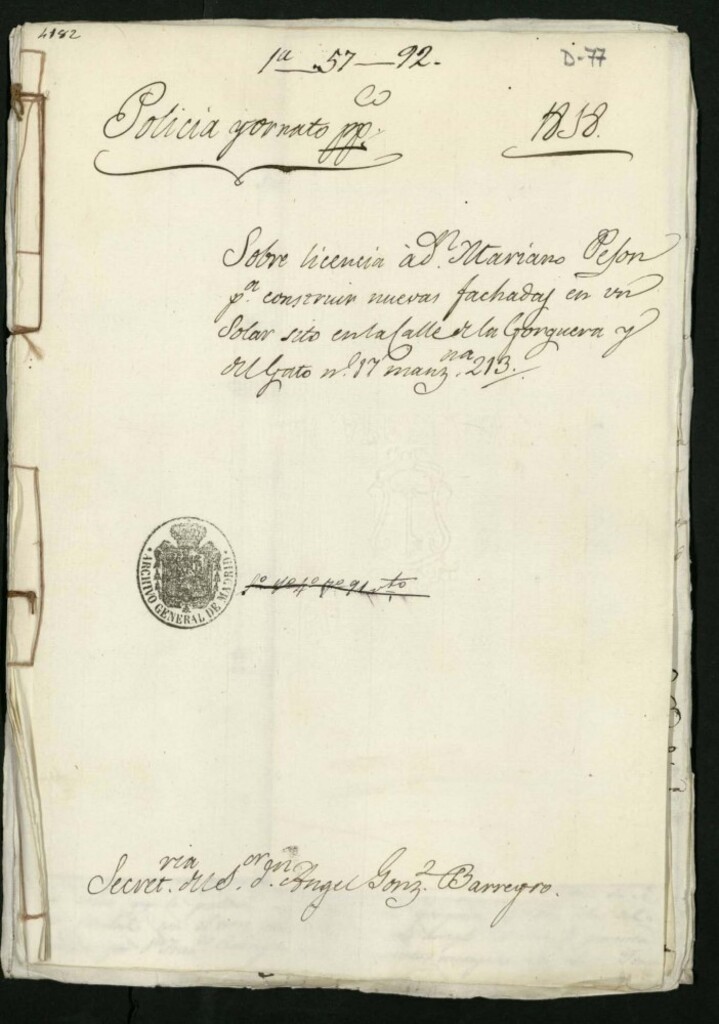 4182
1ª 57 - 92.
D-77
Policía y ornato pp.co
1818.
Sobre licencia à dn. Mariano Peson
pª. construir nuevas fachadas en vn
Solar sito en la Calle de la Gorguera y
del Gato n.º 17 manzna. 213.
ARCHIVO GENERAL DE MADRID
Secretria. del Sor. dn. Angel Gonzz. Barreyro.